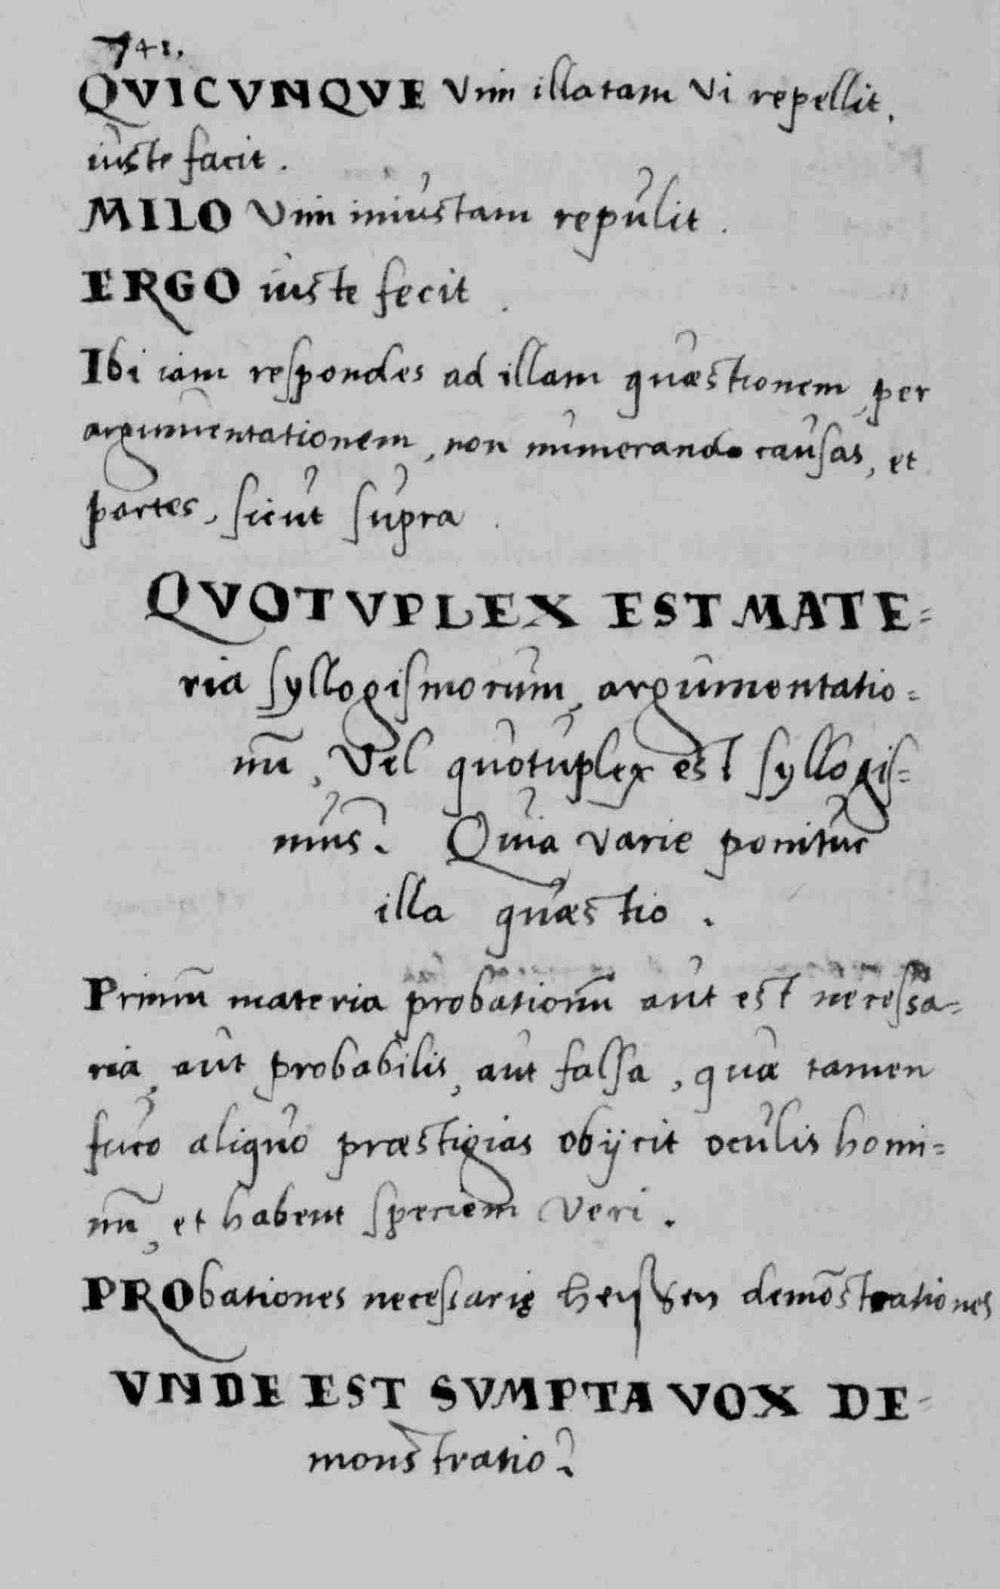 741.
QVICVNQVE Vim illatam Vi repellit,
iuste facit.
MILO Vim iniustam repulit.
ERGO iuste fecit.
Ibi iam respondes ad illam quæstionem, per
argumentationem, non numerando causas, et
partes, sicut supra.
QVOTVPLEX EST MATE=
ria syllogismorum, argumentatio=
nū, Vel quotuplex est syllogis=
mus? Quia varie ponitur
illa quæstio.
Primū materia probationū aut est necessa=
ria, aut probabilis, aut falsa, quæ tamen
fuco aliquo præstigias obijcit oculis homi=
nū, et habent speciem Veri.
PRObationes necessarię heissen demōstrationes
VNDE EST SVMPTA VOX DE=
monstratio?